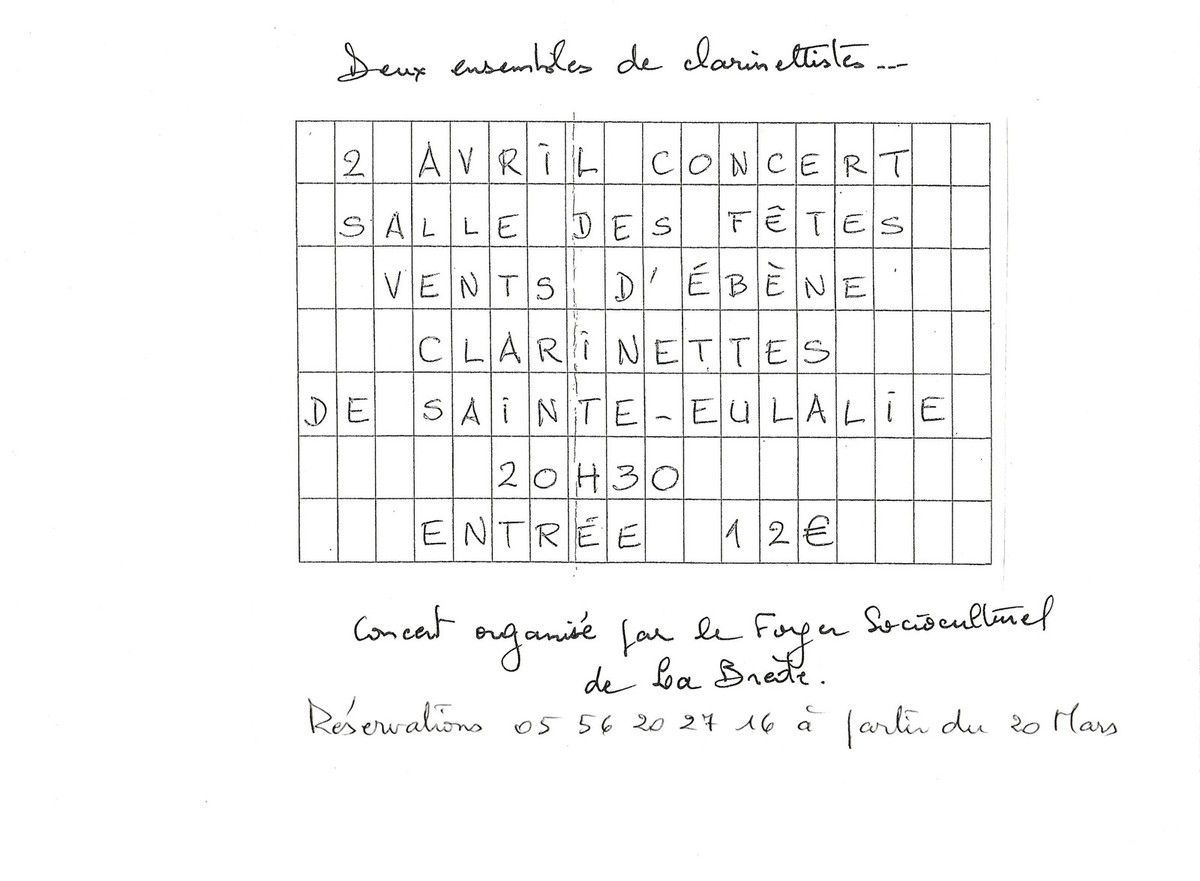 Deux ensembles de clarinettistes...
2 AVRIL CONCERT
SALLE DES FÊTES
VENTS D'ÉBÈNE
CLARINETTES
DE SAINTE-EULALIE
20H30
ENTRÉE 12€
Concert organisé par le Foyer Socioculturel
de La Brède.
Réservations 05 56 20 27 16 à partir du 20 Mars